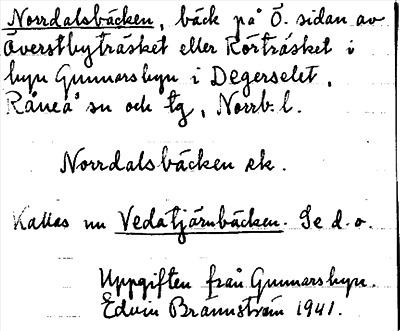 Norrdalsbäcken, bäck på Ö. sidan av
Överstbyträsket eller Rörträsket i
byn Gunnarsbyn i Degerselet,
Råneå sn och tg, Norrb. l.
Norrdalsbäcken ek.
Kallas nu Vedatjärnbäcken. Se d. o.
Uppgiften från Gunnarsbyn.
Edvin Brännström 1941.